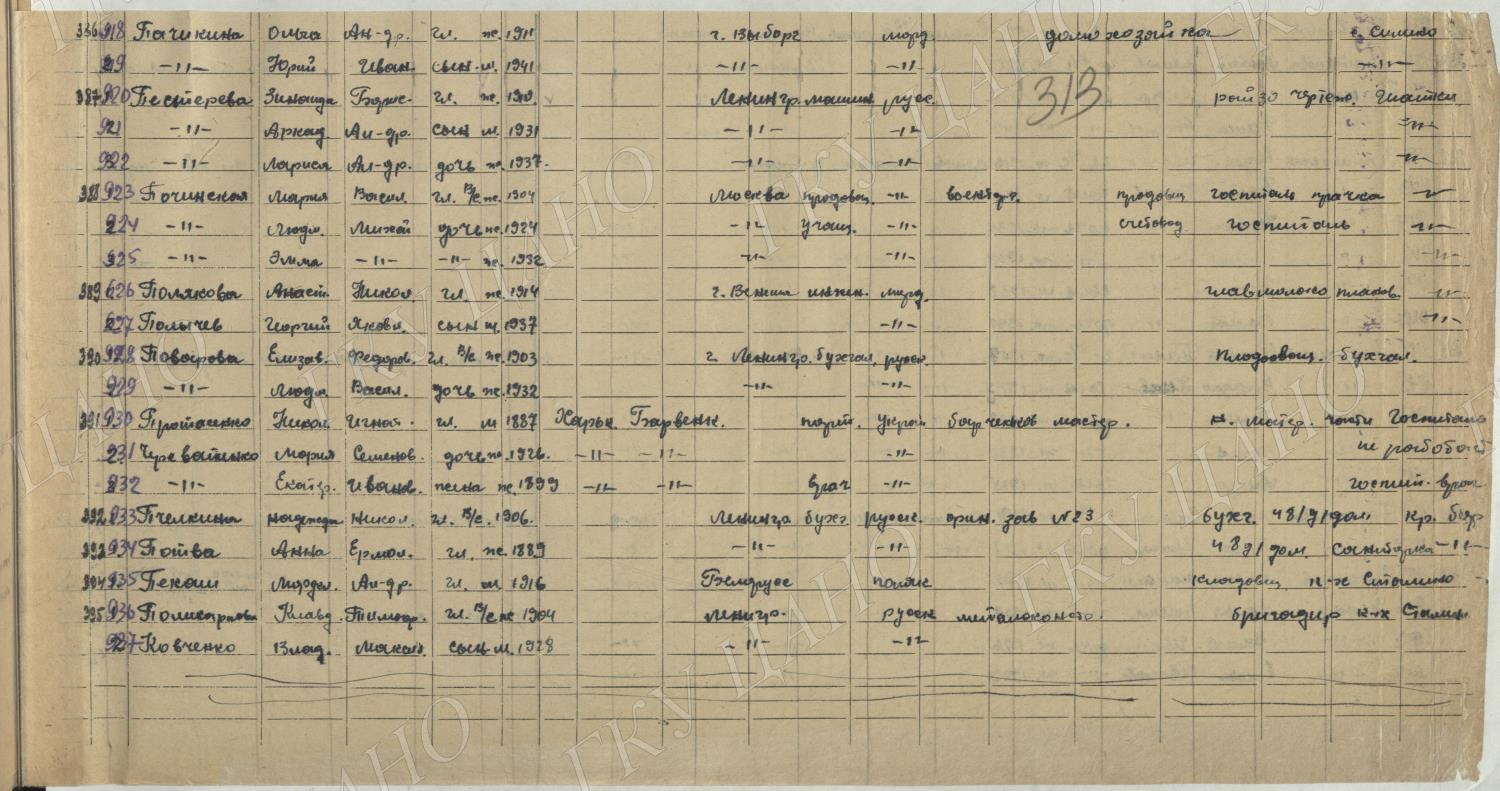 386 918 Пачикина Ольга Ал-др. гл. ж. 1911 г. Выборг морд. домохозяйка с. Силино
919 -"- Юрий Иван. сын м. 1941 -"- -"- -"-
387 920 Пестерева Зинаида Борис. гл. ж. 1910. Ленингр. машин. русс. райзо чертеж. Шатки
921 -"- Аркад. Ал-др. сын м. 1931 -"- -"- -"-
922 -"- Лариса Ал-др. дочь ж. 1937. -"- -"- -"-
388 923 Починская Мария Васил. гл. в/с ж. 1904 Москва продовщ. -"- военторг. продовщ госпиталь прачка -"-
924 -"- Людм. Михай дочь ж. 1924 -"- учащ. -"- счетовод госпиталь -"-
925 -"- Эмма -"- -"- ж. 1932 -"- -"- -"-
389 926 Полякова Анаст. Никол. гл. ж. 1914 г. инжен. морд. главмолоко планов. -"-
927 Полычев Георгий Яковл. сын м. 1937 -"- -"-
390 928 Поварова Елизав. Федоров. гл. в/с ж. 1903 г. Ленингр. бухгал. русск. плодоовощ. бухгал.
929 -"- Людм. Васил. дочь ж. 1932 -"- -"-
391 930 Протасенко Никол. Игнат. гл. м 1887 Харьк. Барвенк. парт. украин мастер. н. матер. части Госпиталь
931 Череватенко Мария Семенов. дочь ж. 1926. -"- -"- -"- не работает
932 -"- Екатер. Иванов. жена ж. 1899 -"- -"- врач -"- госпит. врач
392 933 Пчелкина Надежда Никол. гл. в/с. 1906. Ленингр бухг. русск. зав №23 бухг. 48/д/дом. кр. бор
393 934 Потва Анна Ермол. гл. ж. 1889 -"- -"- 48 д/дом. санитарка -"-
394 935 Пекаш Ал-др. гл. м 1916 Белорус поляк кладовщ к-х Сталино
395 936 Поликарпова Клавд. Тимоф. гл. в/с ж 1904 Ленингр. русск бригадир к-х Сталин.
937 Ковченко Влад. Макат. сын м. 1928 -"- -"-
313
ГКУ ЦАНО